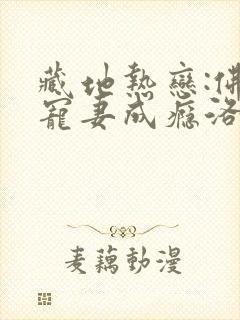 藏地熱戀:佛
寵妻成癮洛
麦藕動漫